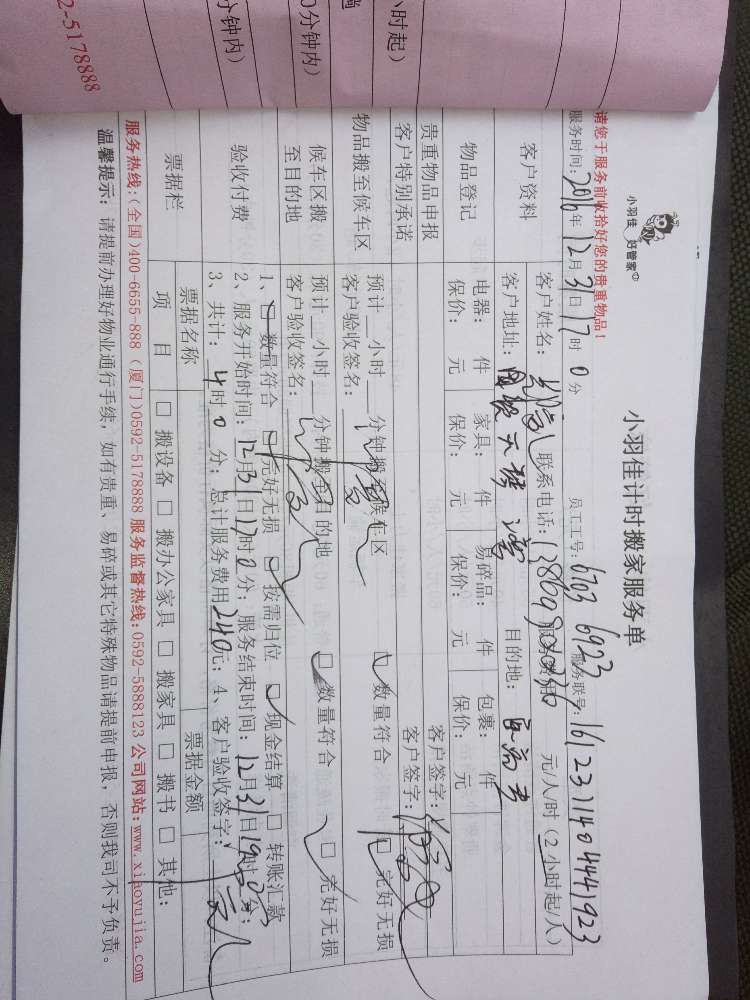 小羽佳
好管家
小羽佳计时搬家服务单
请您于服务前收拾好您的贵重物品！
员工工号：6703 6923
服务联号：1612311404441923
服务时间：2016年12月31日17时0分
客户资料
客户姓名：
联系电话：
元/人时（2小时起/人）
客户地址：
目的地：
物品登记
电器： 件 家具： 件 易碎品： 件 包裹： 件
保价： 元 保价： 元 保价： 元 保价： 元
贵重物品申报
客户签字：
客户特别承诺
客户签字：
物品搬至候车区
预计 小时 分钟搬至候车区 □ 数量符合 □ 完好无损
客户验收签名：
候车区搬
至目的地
预计 小时 分钟搬至目的地 □ 数量符合 □ 完好无损
客户验收签名：
验收付费
1、□ 数量符合 □ 完好无损 □ 按需归位 □ 现金结算 □ 转账汇款
2、服务开始时间：12月31日17时0分；服务结束时间：12月31日19时0分；
3、共计：4时0分；总计服务费用240元；4、客户验收签字：
票据栏
票据名称
票据金额
项 目 □ 搬设备 □ 搬办公家具 □ 搬家具 □ 搬书 □ 其他：
服务热线：(全国)400-6655-888（厦门）0592-5178888 服务监督热线：0592-5888123 公司网站：www.xiaoyujia.com
温馨提示：请提前办理好物业通行手续，如有贵重、易碎或其它特殊物品请提前申报，否则我司不予负责。
小时起）
0分钟内）
分钟内）
92-5178888